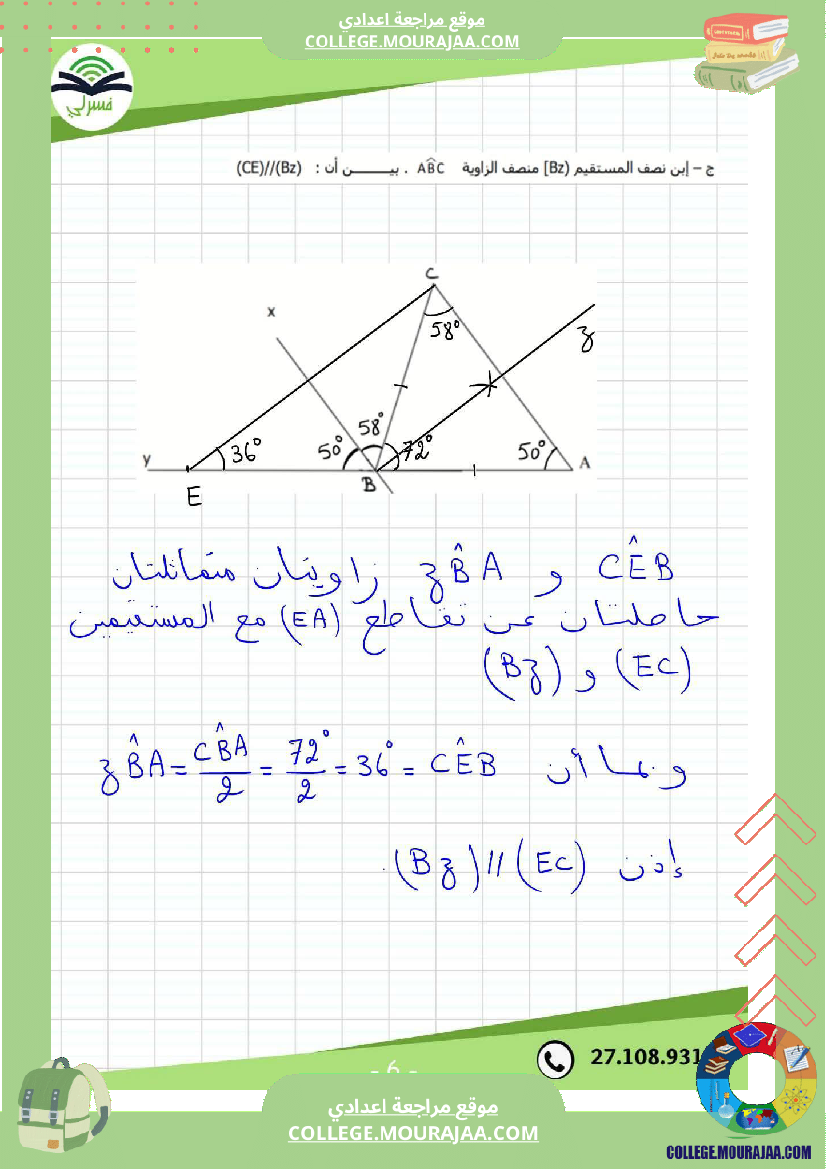 موقع مراجعة اعدادي
COLLEGE.MOURAJAA.COM
فسرلي
ج – إبن نصف المستقيم [Bz) منصف الزاوية AB̂C . بيـــــــن أن : (CE)//(Bz)
C
x
58°
z
58°
y
36°
50°
72°
50°
A
B
E
CÊB و zB̂A زاويتان متماثلتان
حاصلتان عن تقاطع (EA) مع المستقيمين
(EC) و (Bz)
وبما أن zB̂A = CB̂A/2 = 72°/2 = 36° = CÊB
إذن (Bz)//(EC).
- 6 -
27.108.931
موقع مراجعة اعدادي
COLLEGE.MOURAJAA.COM
COLLEGE.MOURAJAA.COM